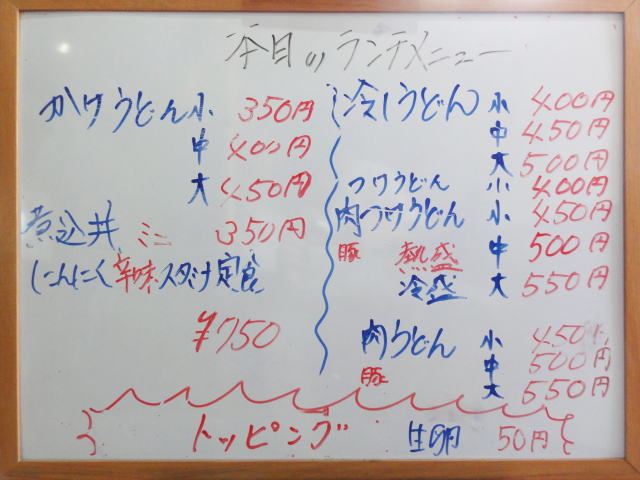 本日のランチメニュー
かけうどん 小 350円
中 400円
大 450円
煮込丼 ミニ 350円
にんにく辛味スタミナ定食
¥750
冷しうどん 小 400円
中 450円
大 500円
つけうどん 小 400円
肉つけうどん 小 450円
豚 熱盛 中 500円
冷盛 大 550円
肉うどん 小 450円
中 500円
豚 大 550円
トッピング 生卵 50円